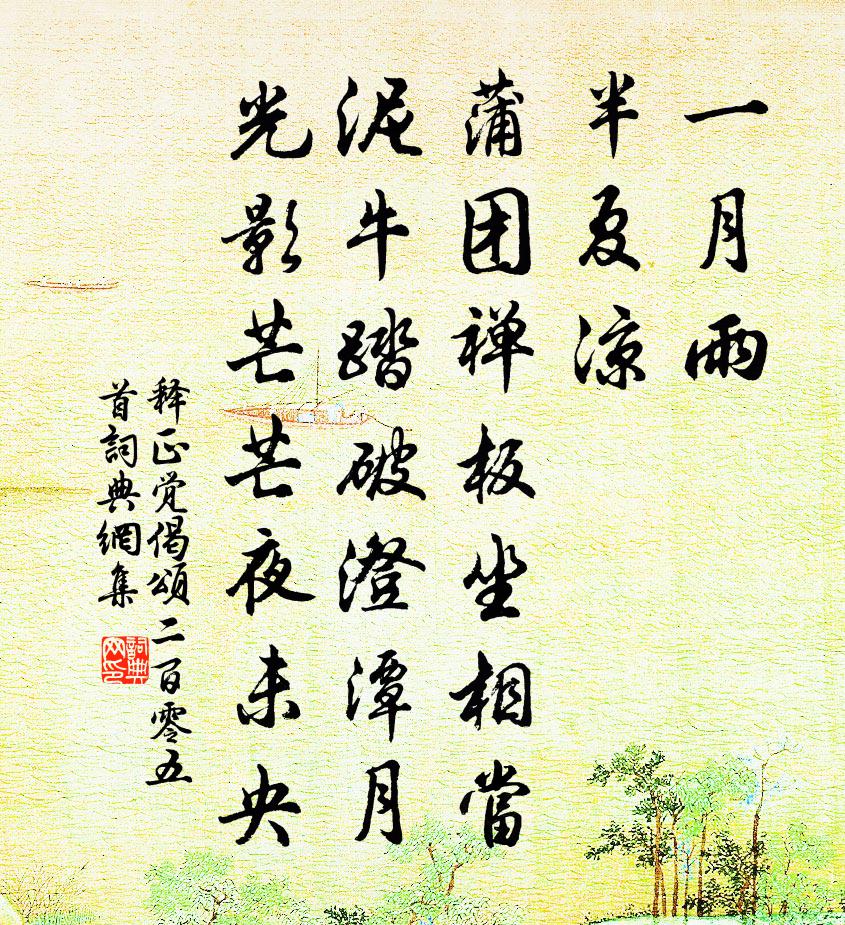 一月雨
半夏凉
蒲团禅板坐相當
泥牛踏破澄潭月
光影芒芒夜未央
释正觉偈頌二百零五
首詞典網集
詞典
网印